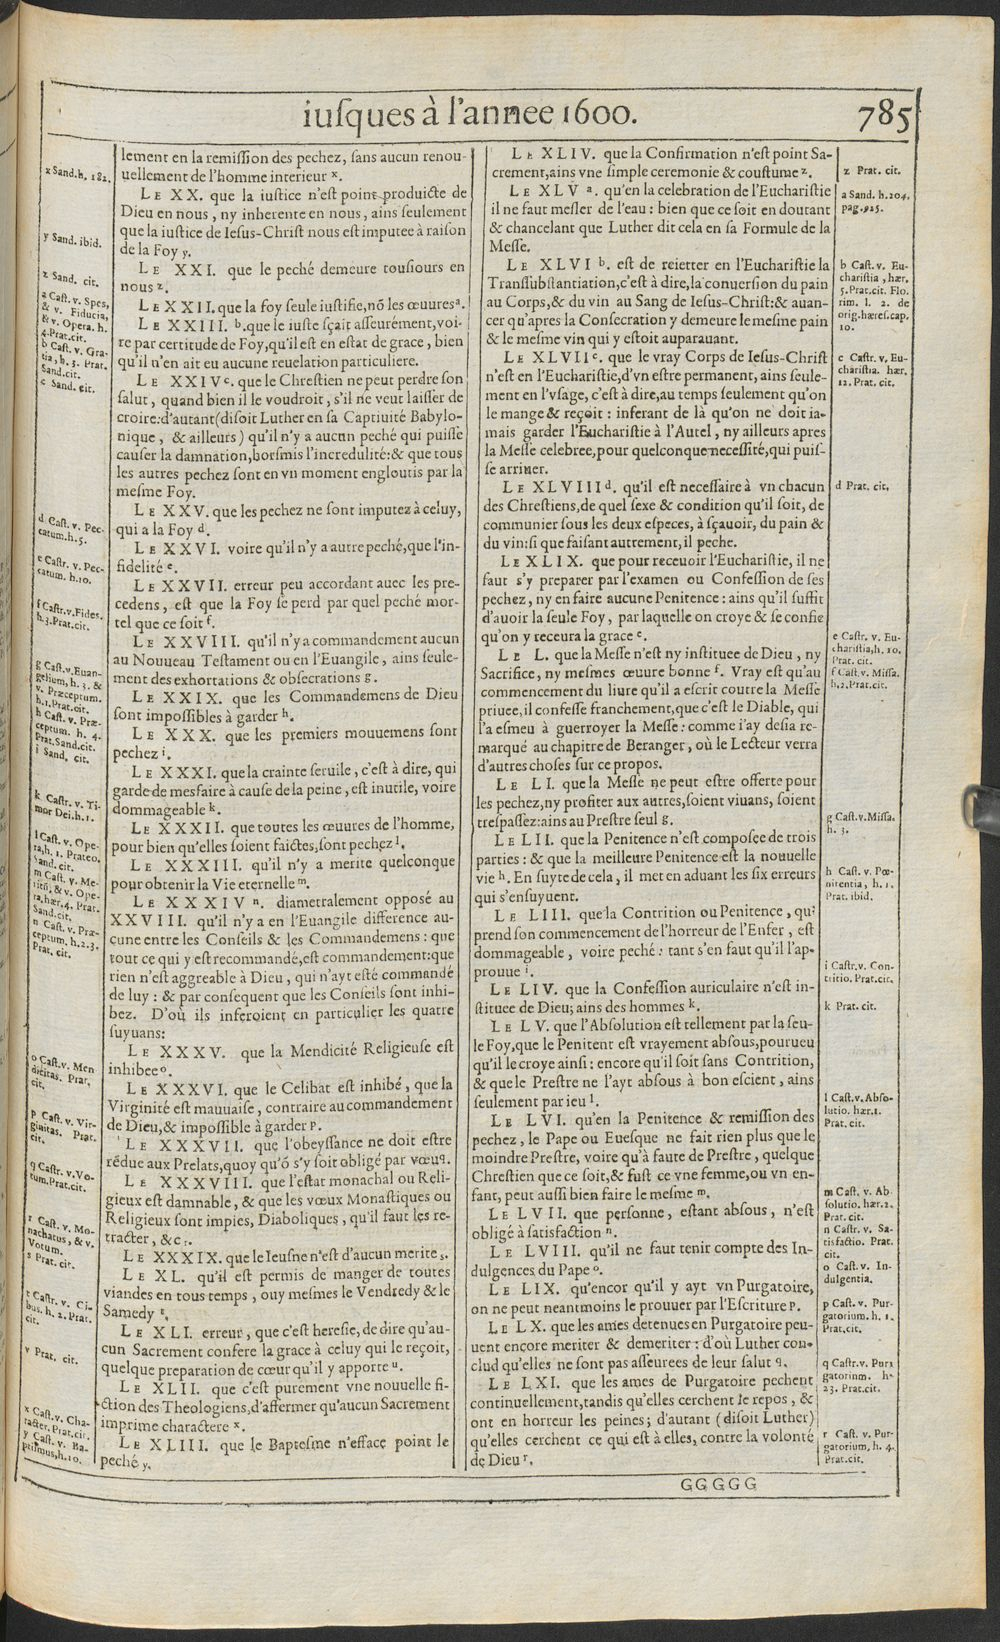 iusques à l'annee 1600. 785
lement en la remission des pechez, sans aucun renou-
uellement de l'homme interieur x.
LE XX. que la iustice n'est point produicte de
Dieu en nous, ny inherente en nous, ains seulement
que la iustice de Iesus-Christ nous est imputee à raison
de la Foy y.
LE XXI. que le peché demeure tousiours en
nous z.
LE XXII. que la foy seule iustifie, nõ les œuures a.
LE XXIII. b. que le iuste sçait asseurément, voi-
re par certitude de Foy, qu'il est en estat de grace, bien
qu'il n'en ait eu aucune reuelation particuliere.
LE XXIV c. que le Chrestien ne peut perdre son
salut, quand bien il le voudroit, s'il ne veut laisser de
croire: d'autant (disoit Luther en sa Captiuité Babylo-
nique, & ailleurs) qu'il n'y a aucun peché qui puisse
causer la damnation, horsmis l'incredulité: & que tous
les autres pechez sont en vn moment engloutis par la
mesme Foy.
LE XXV. que les pechez ne sont imputez à celuy,
qui a la Foy d.
LE XXVI. voire qu'il n'y a autre peché, que l'in-
fidelité e.
LE XXVII. erreur peu accordant auec les pre-
cedens, est que la Foy se perd par quel peché mor-
tel que ce soit f.
LE XXVIII. qu'il n'y a commandement aucun
au Nouueau Testament ou en l'Euangile, ains seule-
ment des exhortations & obsecrations g.
LE XXIX. que les Commandemens de Dieu
sont impossibles à garder h.
LE XXX. que les premiers mouuemens sont
pechez i.
LE XXXI. que la crainte seruile, c'est à dire, qui
garde de mesfaire à cause de la peine, est inutile, voire
dommageable k.
LE XXXII. que toutes les œuures de l'homme,
pour bien qu'elles soient faictes, sont pechez l.
LE XXXIII. qu'il n'y a merite quelconque
pour obtenir la Vie eternelle m.
LE XXXIV n. diametralement opposé au
XXVIII. qu'il n'y a en l'Euangile difference au-
cune entre les Conseils & les Commandemens: que
tout ce qui y est recommandé, est commandement: que
rien n'est aggreable à Dieu, qui n'ayt esté commandé
de luy: & par consequent que les Conseils sont inhi-
bez. D'où ils inferoient en particulier les quatre
suyuans:
LE XXXV. que la Mendicité Religieuse est
inhibee o.
LE XXXVI. que le Celibat est inhibé, que la
Virginité est mauuaise, contraire au commandement
de Dieu, & impossible à garder p.
LE XXXVII. que l'obeyssance ne doit estre
rẽdue aux Prelats, quoy qu'õ s'y soit obligé par vœu q.
LE XXXVIII. que l'estat monachal ou Reli-
gieux est damnable, & que les vœux Monastiques ou
Religieux sont impies, Diaboliques, qu'il faut les re-
tracter, &c r.
LE XXXIX. que le Ieusne n'est d'aucun merite s.
LE XL. qu'il est permis de manger de toutes
viandes en tous temps, ouy mesmes le Vendredy & le
Samedy t.
LE XLI. erreur, que c'est heresie, de dire qu'au-
cun Sacrement confere la grace à celuy qui le reçoit,
quelque preparation de cœur qu'il y apporte u.
LE XLII. que c'est purement vne nouuelle fi-
ction des Theologiens, d'affermer qu'aucun Sacrement
imprime charactere x.
LE XLIII. que le Baptesme n'efface point le
peché y.
x Sand. h. 182.
y Sand. ibid.
z Sand. cit.
a Cast. v. Spes,
& v. Fiducia,
& v. Opera. h.
4. Prat. cit.
b Cast. v. Gra-
tia, h. 3. Prat.
Sand. cit.
c Sand. cit.
d Cast. v. Pec-
catum. h. 5.
e Castr. v. Pec-
catum. h. 10.
f Castr. v. Fides.
h. 3. Prat. cit.
g Cast. v. Euan-
gelium, h. 3. &
v. Præceptum.
h. 1. Prat. cit.
h Cast. v. Præ-
ceptum. h. 4.
Prat. Sand. cit.
i Sand. cit.
k Castr. v. Ti-
mor Dei. h. 1.
l Cast. v. Ope-
ra, h. 1. Prateo.
Sand. cit.
m Cast. v. Me-
ritũ, & v. Ope-
ra, hær. 4. Prat.
Sand. cit.
n Cast. v. Præ-
ceptum, h. 2. 3.
Prat. cit.
o Cast. v. Men
dicitas. Prat.
cit.
p Cast. v. Vir-
ginitas. Prat.
cit.
q Castr. v. Vo-
tum. Prat. cit.
r Cast. v. Mo-
nachatus, & v.
Votum.
s Prat. cit.
t Castr. v. Ci-
bus. h. 2. Prat.
cit.
v Prat. cit.
x Cast. v. Cha-
racter. Prat. cit.
y Cast. v. Ba-
ptismus, h. 10.
LE XLIV. que la Confirmation n'est point Sa-
crement, ains vne simple ceremonie & coustume z.
LE XLV a. qu'en la celebration de l'Eucharistie
il ne faut mesler de l'eau: bien que ce soit en doutant
& chancelant que Luther dit cela en sa Formule de la
Messe.
LE XLVI b. est de reietter en l'Eucharistie la
Transsubstantiation, c'est à dire, la conuersion du pain
au Corps, & du vin au Sang de Iesus-Christ: & auan-
cer qu'apres la Consecration y demeure le mesme pain
& le mesme vin qui y estoit auparauant.
LE XLVII c. que le vray Corps de Iesus-Christ
n'est en l'Eucharistie, d'vn estre permanent, ains seule-
ment en l'vsage, c'est à dire, au temps seulement qu'on
le mange & reçoit: inferant de là qu'on ne doit ia-
mais garder l'Eucharistie à l'Autel, ny ailleurs apres
la Messe celebree, pour quelconque necessité, qui puis-
se arriuer.
LE XLVIII d. qu'il est necessaire à vn chacun
des Chrestiens, de quel sexe & condition qu'il soit, de
communier sous les deux especes, à sçauoir, du pain &
du vin: si que faisant autrement, il peche.
LE XLIX. que pour receuoir l'Eucharistie, il ne
faut s'y preparer par l'examen ou Confession de ses
pechez, ny en faire aucune Penitence: ains qu'il suffit
d'auoir la seule Foy, par laquelle on croye & se confie
qu'on y receura la grace e.
LE L. que la Messe n'est ny instituee de Dieu, ny
Sacrifice, ny mesmes œuure bonne f. Vray est qu'au
commencement du liure qu'il a escrit coutre la Messe
priuee, il confesse franchement, que c'est le Diable, qui
l'a esmeu à guerroyer la Messe: comme i'ay desia re-
marqué au chapitre de Beranger, où le Lecteur verra
d'autres choses sur ce propos.
LE LI. que la Messe ne peut estre offerte pour
les pechez, ny profiter aux autres, soient viuans, soient
trespassez: ains au Prestre seul g.
LE LII. que la Penitence n'est composee de trois
parties: & que la meilleure Penitence est la nouuelle
vie h. En suyte de cela, il met en aduant les six erreurs
qui s'ensuyuent.
LE LIII. que la Contrition ou Penitence, qui
prend son commencement de l'horreur de l'Enfer, est
dommageable, voire peché: tant s'en faut qu'il l'ap-
prouue i.
LE LIV. que la Confession auriculaire n'est in-
stituee de Dieu; ains des hommes k.
LE LV. que l'Absolution est tellement par la seu-
le Foy, que le Penitent est vrayement absous, pourueu
qu'il le croye ainsi: encore qu'il soit sans Contrition,
& que le Prestre ne l'ayt absous à bon escient, ains
seulement par ieu l.
LE LVI. qu'en la Penitence & remission des
pechez, le Pape ou Euesque ne fait rien plus que le
moindre Prestre, voire qu'à faute de Prestre, quelque
Chrestien que ce soit, & fust ce vne femme, ou vn en-
fant, peut aussi bien faire le mesme m.
LE LVII. que personne, estant absous, n'est
obligé à satisfaction n.
LE LVIII. qu'il ne faut tenir compte des In-
dulgences du Pape o.
LE LIX. qu'encor qu'il y ayt vn Purgatoire,
on ne peut neantmoins le prouuer par l'Escriture p.
LE LX. que les ames detenues en Purgatoire peu-
uent encore meriter & demeriter: d'où Luther con-
clud qu'elles ne sont pas asseurees de leur salut q.
LE LXI. que les ames de Purgatoire pechent
continuellement, tandis qu'elles cerchent le repos, &
ont en horreur les peines; d'autant (disoit Luther)
qu'elles cerchent ce qui est à elles, contre la volonté
de Dieu r.
z Prat. cit.
a Sand. h. 204.
pag. 925.
b Cast. v. Eu-
charistia, hær.
5. Prat. cit. Flo.
rim. l. 2. de
orig. hæres. cap.
10.
c Castr. v. Eu-
charistia. hær.
12. Prat. cit.
d Prat. cit.
e Castr. v. Eu-
charistia, h. 10.
Prat. cit.
f Cast. v. Missa.
h. 2. Prat. cit.
g Cast. v. Missa.
h. 3.
h Cast. v. Pœ-
nitentia, h. 1.
Prat. ibid.
i Castr. v. Con-
tritio. Prat. cit.
k Prat. cit.
l Cast. v. Abso-
lutio. hær. 1.
Prat. cit.
m Cast. v. Ab
solutio. hær. 2.
Prat. cit.
n Castr. v. Sa-
tisfactio. Prat.
cit.
o Cast. v. In-
dulgentia.
p Cast. v. Pur-
gatorium. h. 1.
Prat. cit.
q Castr. v. Pur
gatorium. h.
23. Prat. cit.
r Cast. v. Pur-
gatorium, h. 4.
Prat. cit.
GGGGG